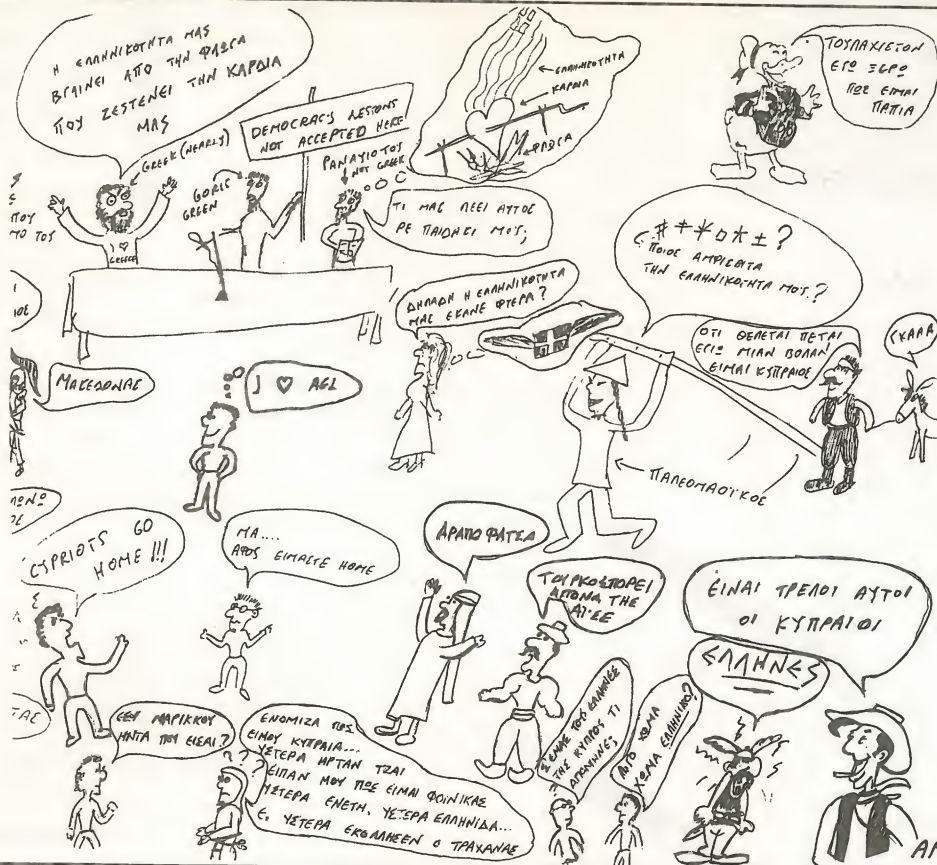 Η ΕΛΛΗΝΙΚΟΤΗΤΑ ΜΑΣ
ΒΓΑΙΝΕΙ ΑΠΟ ΤΗΝ ΦΛΩΓΑ
ΠΟΥ ΖΕΣΤΕΝΕΙ ΤΗΝ ΚΑΡΔΙΑ
ΜΑΣ
GREEK (NEARLY)
I ♥
GREECE
GORIS
GREEN
DEMOCRACY LESSONS
NOT ACCEPTED HERE
ΠΑΝΑΥΙΟΤΟΣ
NOT GREEK
ΤΙ ΜΑΣ ΛΕΕΙ ΑΥΤΟΣ
ΡΕ ΠΑΙΔΑΚΙ ΜΟΥ;
ΕΛΛΗΝΙΚΟΤΗΤΑ
ΚΑΡΔΙΑ
ΦΛΩΓΑ
ΤΟΥΛΑΧΙΣΤΟΝ
ΕΓΩ ΞΕΡΩ
ΠΩΣ ΕΙΜΑΙ
ΠΑΠΙΑ
ΠΟΥ
ΜΟ ΤΟΣ
ΜΑΚΕΔΟΝΑΣ
I ♥ AEL
ΔΗΛΑΔΗ Η ΕΛΛΗΝΙΚΟΤΗΤΑ
ΜΑΣ ΕΚΑΝΕ ΦΤΕΡΑ?
ΠΟΙΟΣ ΑΜΦΙΣΒΙΤΑ
ΤΗΝ ΕΛΛΗΝΙΚΟΤΗΤΑ ΜΟΥ?
ΟΤΙ ΘΕΛΕΤΑΙ ΠΕΤΑΙ
ΕΓΩ ΜΙΑΝ ΒΟΛΑΝ
ΕΙΜΑΙ ΚΥΠΡΑΙΟΣ
ΓΚΑΑΑ
ΠΑΛΕΟΜΑΟΪΚΟΣ
CYPRIOTS GO
HOME!!!
ΜΑ....
ΑΦΟΥ ΕΙΜΑΣΤΕ HOME
ΑΡΑΠΟΦΑΤΣΑ
ΤΟΥΡΚΟΣΠΟΡΕΙ
ΑΠΟΝΑ ΤΗΣ
ΕΙΝΑΙ ΤΡΕΛΟΙ ΑΥΤΟΙ
ΟΙ ΚΥΠΡΑΙΟΙ
ΕΛΛΗΝΕΣ
ΤΑΣ
ΜΑΡΙΚΚΟΥ
ΗΝΤΑ ΠΟΥ ΕΙΣΑΙ?
ΕΝΟΜΙΖΑ ΠΩΣ
ΕΙΜΟΥ ΚΥΠΡΑΙΑ...
ΥΣΤΕΡΑ ΗΡΤΑΝ ΤΖΑΙ
ΕΙΠΑΝ ΜΟΥ ΠΩΣ ΕΙΜΑΙ ΦΟΙΝΙΚΑΣ
ΥΣΤΕΡΑ ΕΝΕΤΗ, ΥΣΤΕΡΑ ΕΛΛΗΝΙΔΑ...
Ε, ΥΣΤΕΡΑ ΕΚΟΛΛΗΣΕΝ Ο ΤΡΑΧΑΝΑΣ
Σ'ΕΜΑΣ ΤΟΥΣ ΕΛΛΗΝΕΣ
ΤΗΣ ΚΥΠΡΟΣ ΤΙ
ΑΠΟΜΗΝΕ;
ΧΩΜΑ
ΧΩΜΑ ΕΛΛΗΝΙΚΟ?